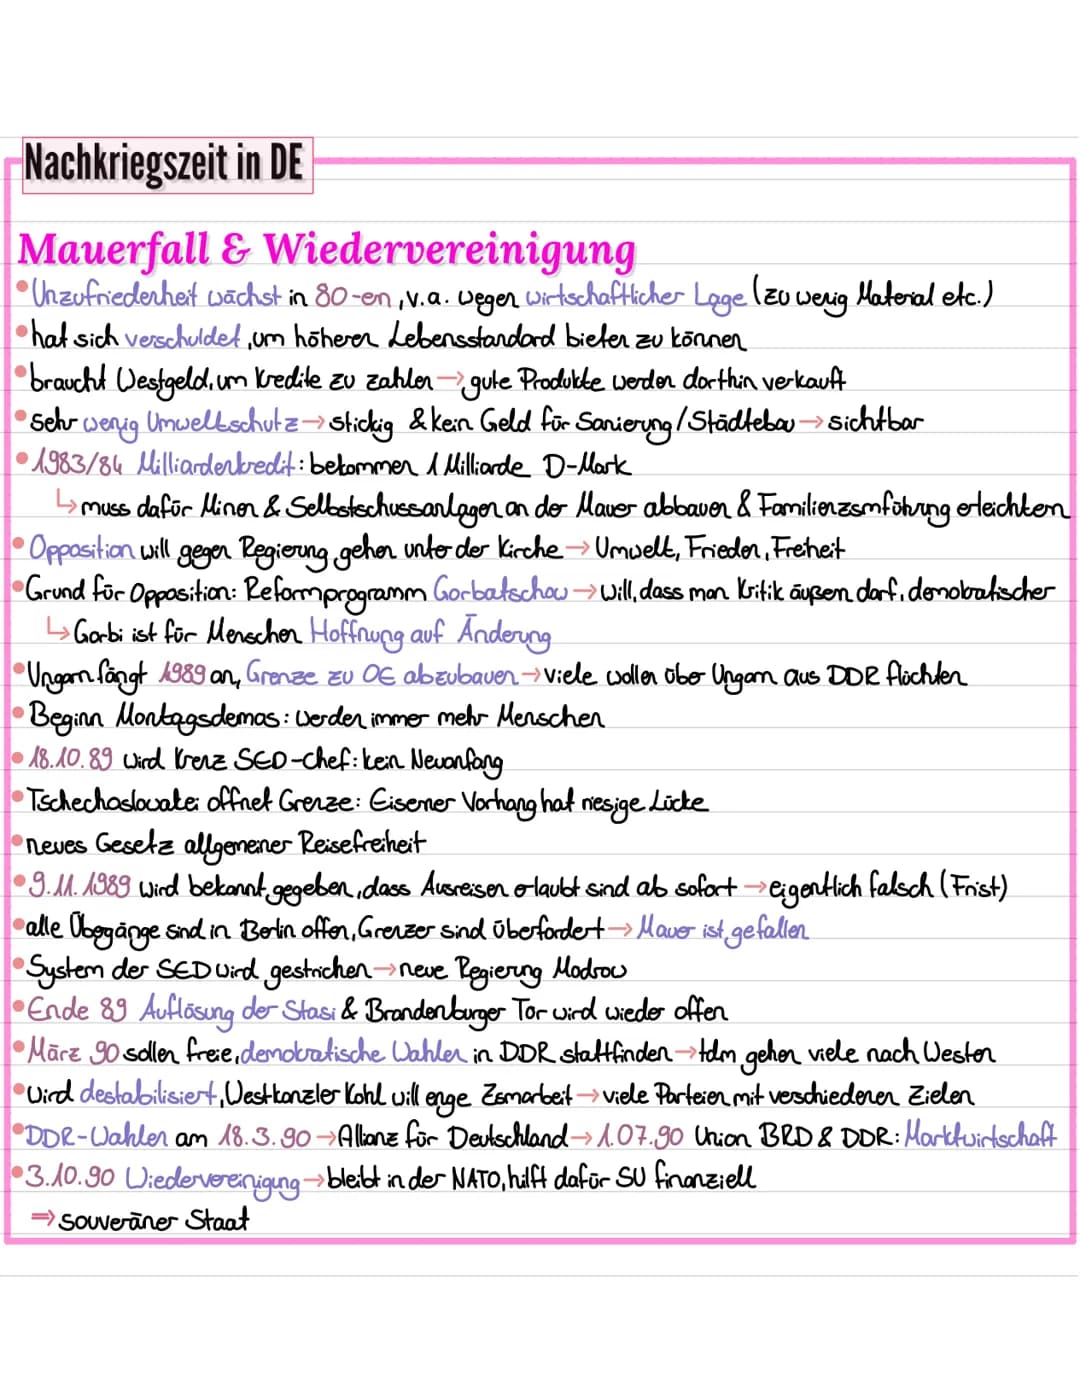 Nachkriegszeit in DE
Mauerfall & Wiedervereinigung
• Unzufriedenheit wächst in 80-en, v.a. wegen wirtschaftlicher Lage (zu wenig Material etc.)
• hat sich verschuldet, um höheren Lebensstandard bieten zu können
• braucht Westgeld, um Kredite zu zahlen → gute Produkte werden dorthin verkauft
• sehr wenig Umweltschutz → stickig & kein Geld für Sanierung/Städtebau → sichtbar
• 1983/84 Milliardenkredit: bekommen 1 Milliarde D-Mark
↳ muss dafür Minen & Selbstschussanlagen an der Mauer abbauen & Familienzsmführung erleichtern
• Opposition will gegen Regierung gehen unter der Kirche → Umwelt, Frieden, Freiheit
• Grund für Opposition: Reformprogramm Gorbatschow → will, dass man Kritik äußern darf, demokratischer
↳ Gorbi ist für Menschen Hoffnung auf Änderung
• Ungarn fängt 1989 an, Grenze zu OE abzubauen → viele wollen über Ungarn aus DDR flüchten
• Beginn Montagsdemos: Werden immer mehr Menschen
• 18.10.89 wird Krenz SED-Chef: kein Neuanfang
• Tschechoslowakei öffnet Grenze: Eiserner Vorhang hat riesige Lücke
• neues Gesetz allgemeiner Reisefreiheit
• 9.11.1989 wird bekannt gegeben, dass Ausreisen erlaubt sind ab sofort → eigentlich falsch (Frist)
• alle Übegänge sind in Berlin offen, Grenzer sind überfordert → Mauer ist gefallen
• System der SED wird gestrichen → neue Regierung Modrow
• Ende 89 Auflösung der Stasi & Brandenburger Tor wird wieder offen
• März 90 sollen freie, demokratische Wahlen in DDR stattfinden → tdm gehen viele nach Westen
• Wird destabilisiert, Westkanzler Kohl will enge Zsmarbeit → viele Parteien mit verschiedenen Zielen
• DDR-Wahlen am 18.3.90 → Allianz für Deutschland → 1.07.90 Union BRD & DDR: Marktwirtschaft
• 3.10.90 Wiedervereinigung → bleibt in der NATO, hilft dafür SU finanziell
⇒ souveräner Staat